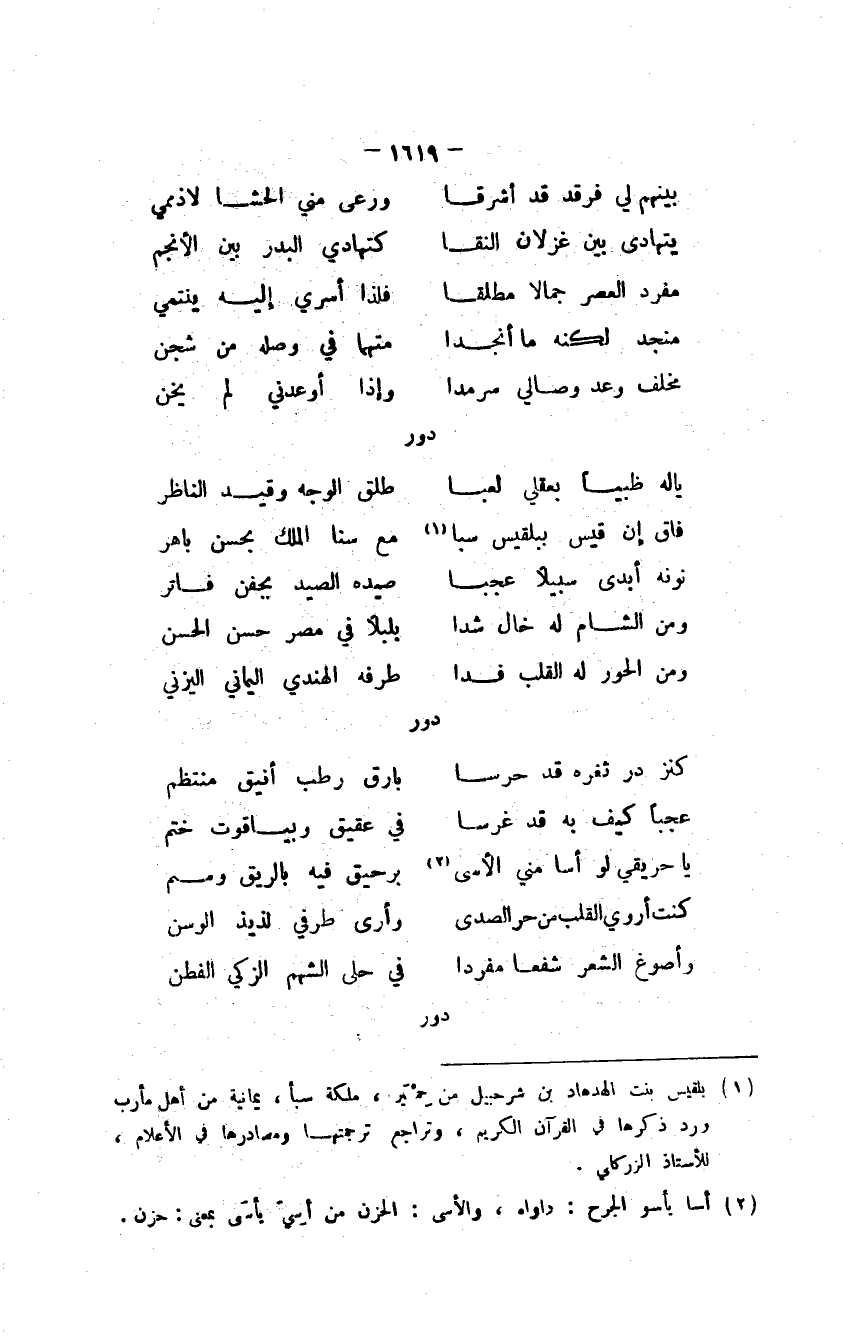 - ١٦١٩ -
بينهم لي فرقد قد أشرقـــا ورعى مني الحشـــا لاذممي
يتهادى بين غزلان النقـــا كتهادي البدر بين الأنجم
مفرد العصر جمالا مطلقـــا فلذا أسري إليـــه ينتمي
منجد لكنه ما أنجـــدا متهما في وصله من شجن
مخلف وعد وصـالي سرمدا وإذا أوعدني لم يخن
دور
ياله ظبيـــاً بعقلي لعبـــا طلق الوجه وقيـــد الناظر
فاق إن قيس ببلقيس سبا (١) مع سنا الملك بحسن باهر
نونه أبدى سبيلاً عجبـــا صيده الصيد بجفن فـــاتر
ومن الشـــام له خال شدا بلبلاً في مصر حسن الحسن
ومن الحور له القلب فـــدا طرفه الهندي اليماني اليزني
دور
كنز در ثغره قد حرســـا بارق رطب أنيق منتظم
عجباً كيف به قد غرســا في عقيق وبيـــاقوت ختم
يا حريقي لو أسا مني الأسى (٢) برحيق فيه بالريق وســـم
كنت أروي القلب من حر الصدى وأرى طرفي لذيذ الوسن
وأصوغ الشعر شفعــا مفردا في حلى الشهم الزكي الفطن
دور
(١) بلقيس بنت الهدهاد بن شرحبيل من حِمْيَر ، ملكة سبأ ، يمانية من أهل مأرب
ورد ذكرها في القرآن الكريم ، وتراجع ترجمتهــا ومصادرها في الأعلام ،
للأستاذ الزركلي .
(٢) أسا يأسو الجرح : داواه ، والأسى : الحزن من أسِيَ يأسَى بمعنى : حزن .